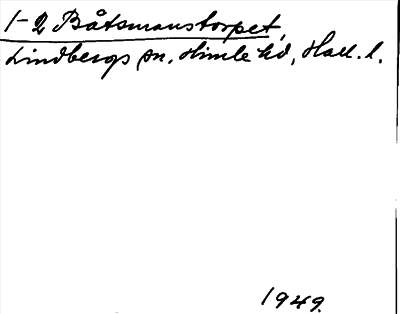 1-2 Båtsmanstorpet,
Lindbergs sn. Himle hd, Hall. l.
1949.